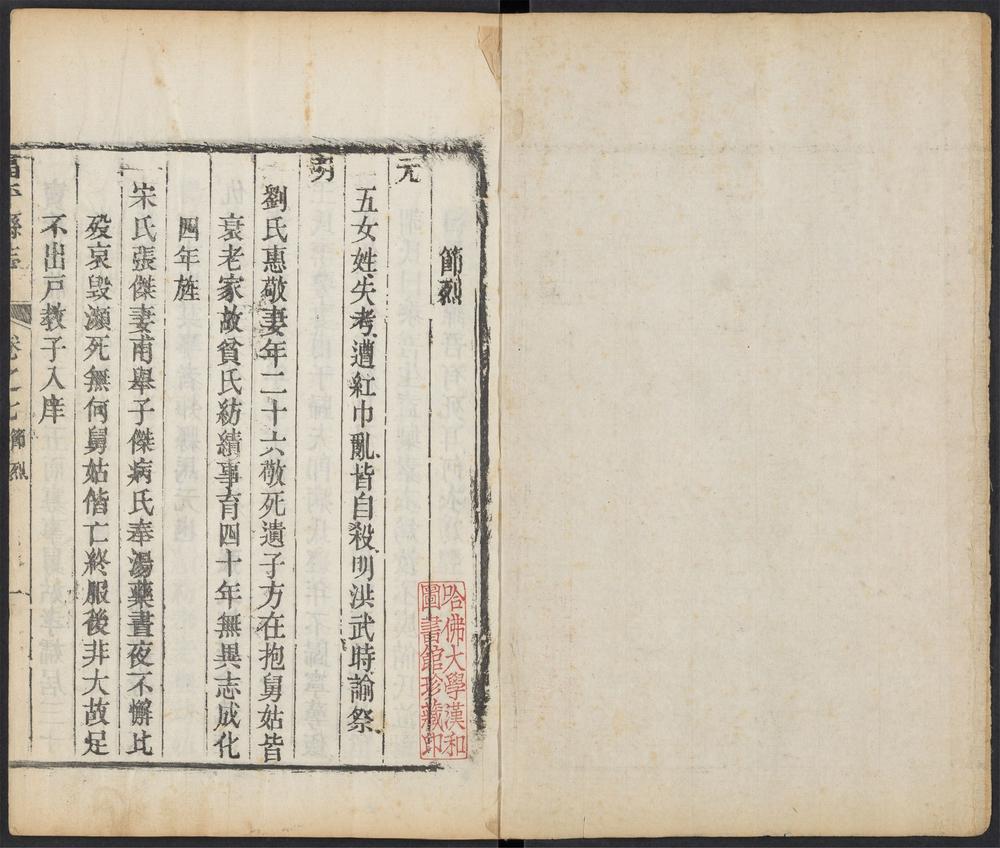 節烈
元
五女姓失考遭紅巾亂皆自殺明洪武時諭祭
明
劉氏惠敬妻年二十六敬死遺子方在抱舅姑皆
衰老家故貧氏紡績事育四十年無異志成化
四年旌
宋氏張傑妻甫舉子傑病氏奉湯藥晝夜不懈比
歿哀毀瀕死無何舅姑偕亡終服後非大故足
不出戸教子入庠
縣志
卷之七
節烈
一
哈佛大學漢和
圖書館珍藏印